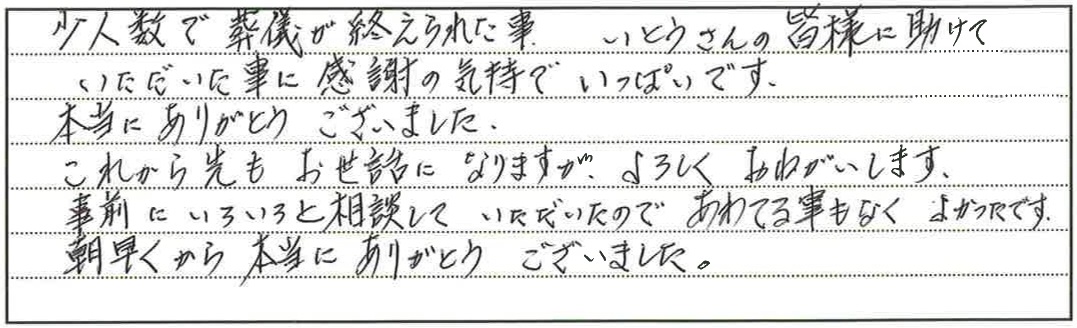 少人数で葬儀が終えられた事、いとうさんの皆様に助けて
いただいた事に感謝の気持でいっぱいです、
本当にありがとうございました、
これから先もお世話になりますが、よろしくおねがいします、
事前にいろいろと相談していただいたのであわてる事もなくよかったです、
朝早くから本当にありがとうございました。